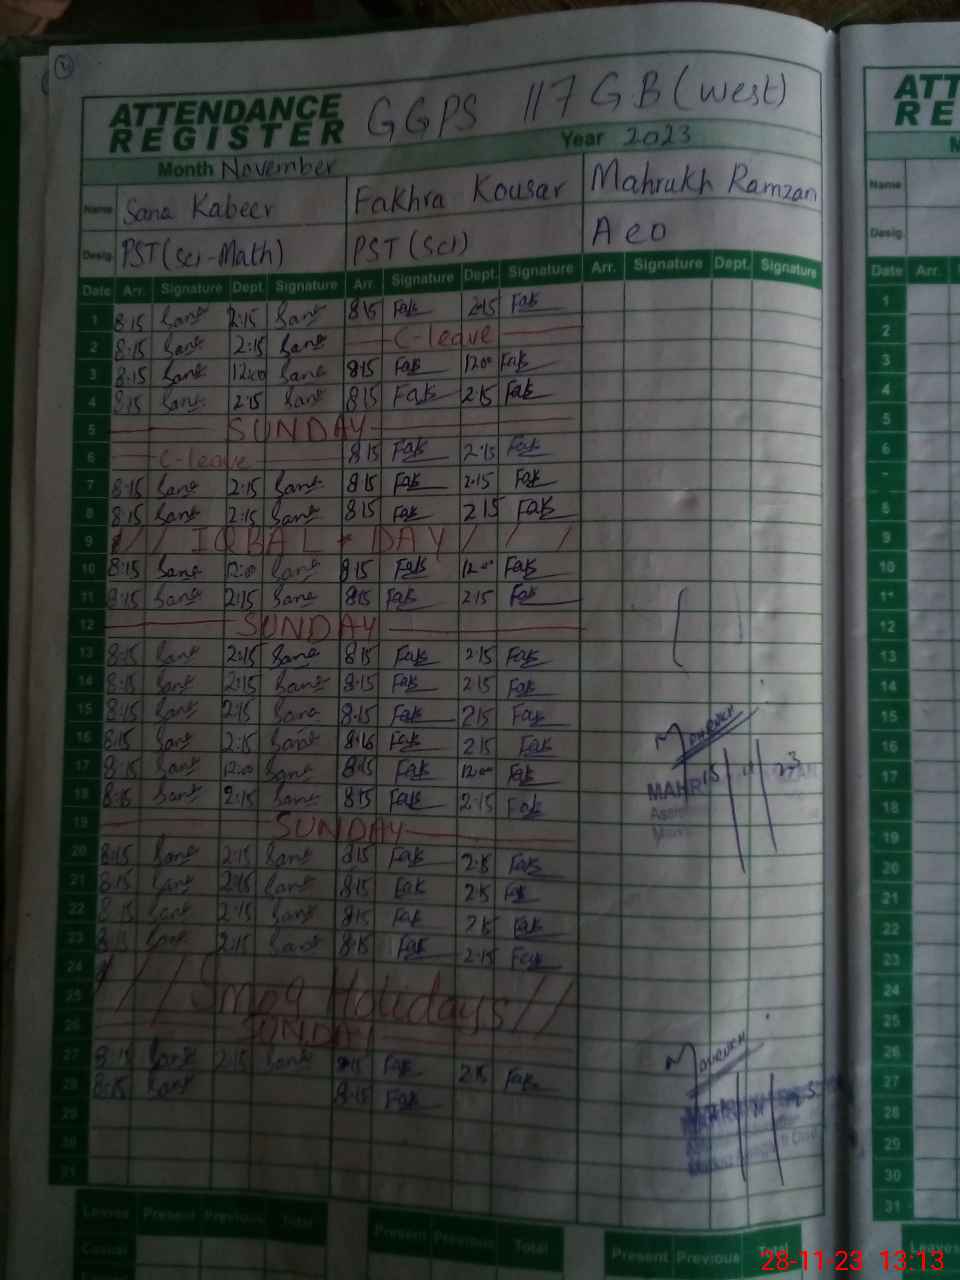 ATTENDANCE REGISTER GGPS 117 GB (west)
Month November Year 2023
Name Sana Kabeer Fakhra Kousar Mahrukh Ramzan
Desig. PST (sci-Math) PST (sci) Aeo
Date Arr. Signature Dept. Signature Arr. Signature Dept. Signature Arr. Signature Dept. Signature
1 8:15 Sana 2:15 Sana 8:15 Fak 2:15 Fak
2 8:15 Sana 2:15 Sana C-leave
3 8:15 Sana 12:00 Sana 8:15 Fak 12:00 Fak
4 8:15 Sana 2:15 Sana 8:15 Fak 2:15 Fak
5 SUNDAY
6 C-leave 8:15 Fak 2:15 Fak
7 8:15 Sana 2:15 Sana 8:15 Fak 2:15 Fak
8 8:15 Sana 2:15 Sana 8:15 Fak 2:15 Fak
9 IQBAL DAY
10 8:15 Sana 12:00 Sana 8:15 Fak 12:00 Fak
11 8:15 Sana 2:15 Sana 8:15 Fak 2:15 Fak
12 SUNDAY
13 8:15 Sana 2:15 Sana 8:15 Fak 2:15 Fak
14 8:15 Sana 2:15 Sana 8:15 Fak 2:15 Fak
15 8:15 Sana 2:15 Sana 8:15 Fak 2:15 Fak
16 8:15 Sana 2:15 Sana 8:16 Fak 2:15 Fak
17 8:15 Sana 12:00 Sana 8:15 Fak 12:00 Fak
18 8:15 Sana 2:15 Sana 8:15 Fak 2:15 Fak
19 SUNDAY
20 8:15 Sana 2:15 Sana 8:15 Fak 2:15 Fak
21 8:15 Sana 2:15 Sana 8:15 Fak 2:15 Fak
22 8:15 Sana 2:15 Sana 8:15 Fak 2:15 Fak
23 8:15 Sana 2:15 Sana 8:15 Fak 2:15 Fak
24
25 Smog Holidays
26 SUNDAY
27 8:15 Sana 2:15 Sana 8:15 Fak 2:15 Fak
28 8:15 Sana 8:15 Fak
29
30
31
Mahrukh
15 11 23
Mahrukh
Leaves Present Previous Total Present Previous Total Present Previous Total
Casual
Name
Desig.
Date Arr.
1
2
3
4
5
6
8
9
10
11
12
13
14
15
16
17
18
19
20
21
22
23
24
25
26
27
28
29
30
31
Leaves
28-11-23 13:13